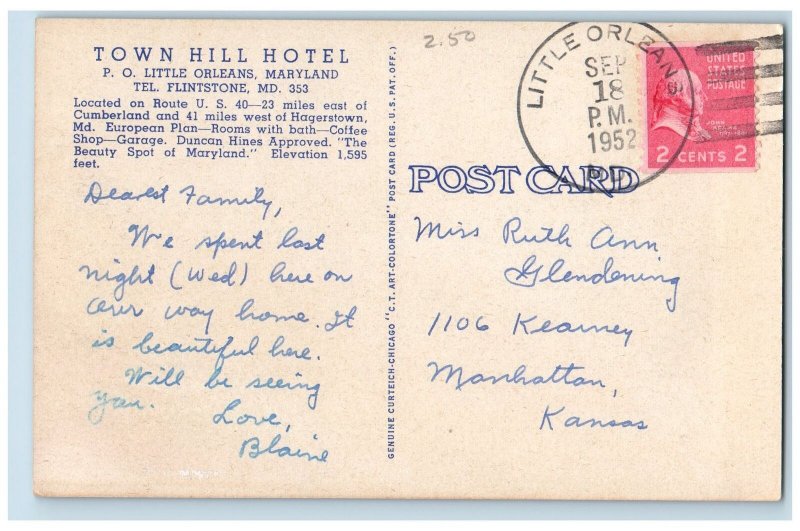 TOWN HILL HOTEL
P. O. LITTLE ORLEANS, MARYLAND
TEL. FLINTSTONE, MD. 353
Located on Route U. S. 40—23 miles east of
Cumberland and 41 miles west of Hagerstown,
Md. European Plan—Rooms with bath—Coffee
Shop—Garage. Duncan Hines Approved. "The
Beauty Spot of Maryland." Elevation 1,595
feet.
Dearest Family,
We spent last
night (Wed) here on
our way home. It
is beautiful here.
Will be seeing
you.
Love,
Blaine
GENUINE CURTEICH-CHICAGO "C. T. ART-COLORTONE" POST CARD (REG. U. S. PAT. OFF.)
2.50
LITTLE ORLEANS
SEP
18
P.M.
1952
MD.
UNITED
STATES
POSTAGE
JOHN
ADAMS
2 CENTS 2
POST CARD
Miss Ruth Ann
Glendening
1106 Kearney
Manhattan,
Kansas